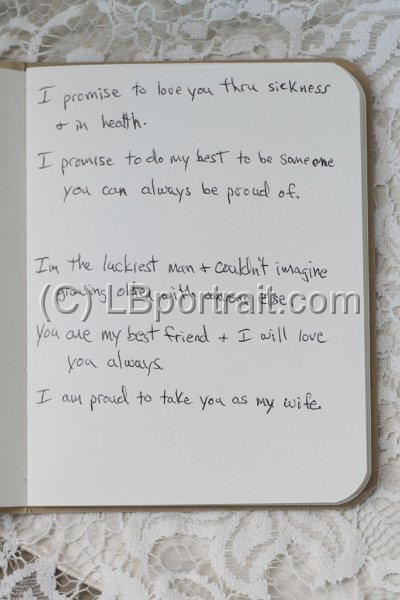 I promise to love you thru sickness
+ in health.
I promise to do my best to be someone
you can always be proud of.
I'm the luckiest man + couldn't imagine
growing older with anyone else.
(C) LBportrait.com
You are my best friend + I will love
you always.
I am proud to take you as my wife.